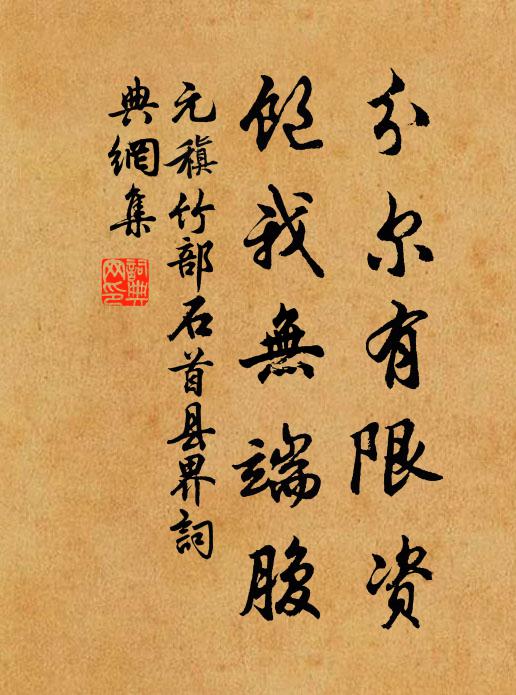 分尔有限资
饱我無端腹
元稹竹部石首县界詞
典網集
詞典
网印